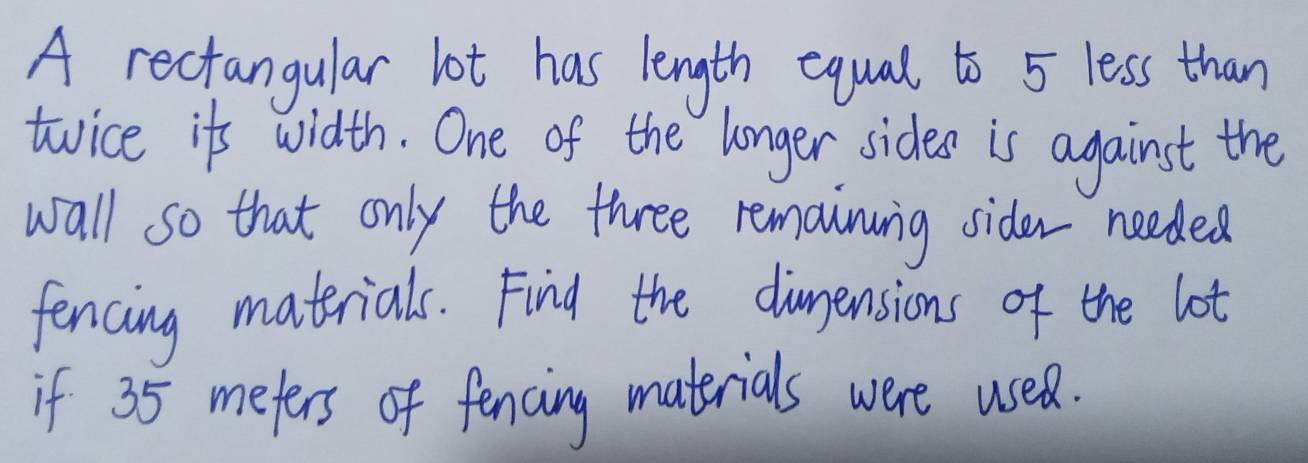 A rectangular lot has length equal to 5 less than
twice its width. One of the longer sides is against the
wall so that only the three remaining sides needed
fencing materials. Find the dimensions of the lot
if 35 meters of fencing materials were used.